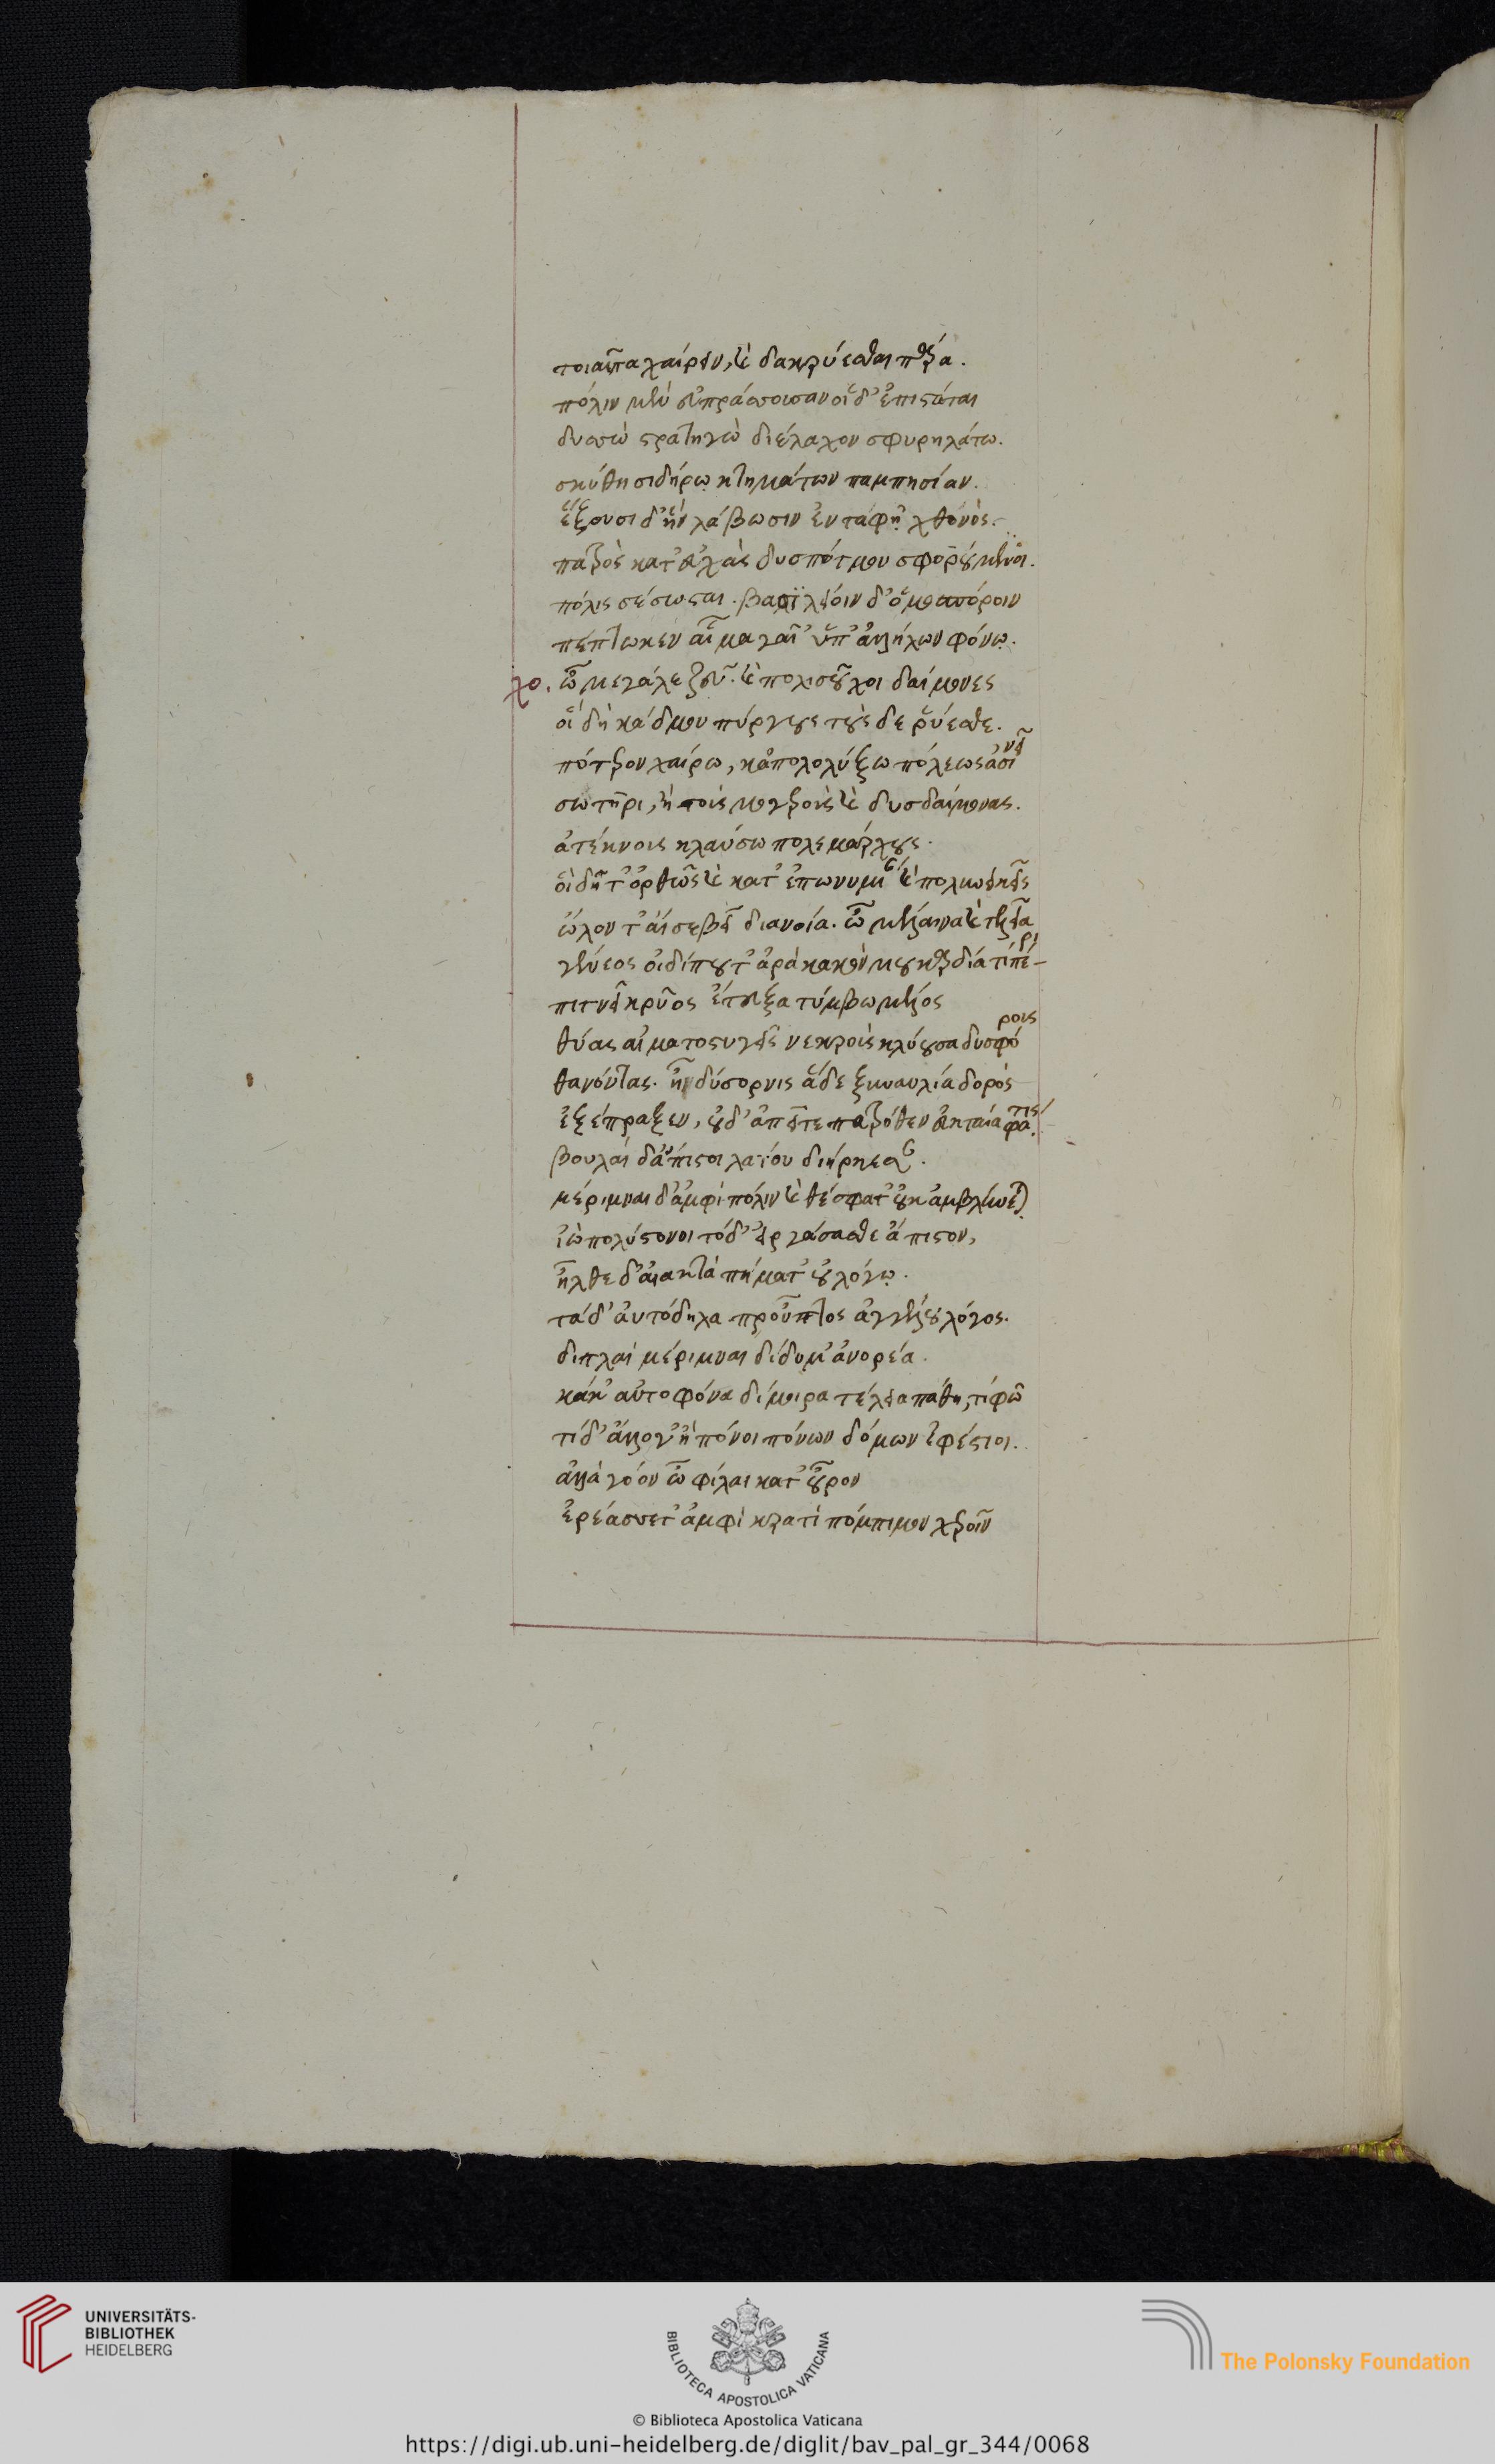 τοιαῦτα χαίρειν, καὶ δακρύεσθαι πάρα.
πόλιν μὲν εὖ πράσσουσαν οἱ δ' ἐπιστάται
δισσὼ στρατηγὼ διέλαχον σφυρηλάτω.
σκύθη σιδήρω κτημάτων παμπησίαν.
ἕξουσι δ' ἣν λάβωσιν ἐν ταφῇ χθονὸς.
πατρὸς κατ' εὐχὰς δυσπότμου σφορούμενοι.
πόλις σέσωσται. βασιλέοιν δ' ὁμοσπόροιν
πέπτωκεν αἷμα γαῖ' ὑπ' ἀλλήλων φόνῳ.
χο. ὦ μεγάλε ζεῦ. καὶ πολισοῦχοι δαίμονες
οἳ δὴ κάδμου πύργους τούσδε ῥύεσθε.
πότερον χαίρω, κἀπολολύξω πόλεως ἀσινεῖ
σωτῆρι, ἢ τοὺς μογεροὺς καὶ δυσδαίμονας.
ἀτέκνοις κλαύσω πολεμάρχους.
οἳ δῆτ' ὀρθῶς καὶ κατ' ἐπωνυμίαν καὶ πολυνεικεῖς
ὤλοντ' ἀσεβεῖ διανοία. ὦ μέλαινα καὶ τελεία
γένεος οἰδίπου τ' ἀρὰ κακόν με καρδία τι περι-
πιτνεῖ κρύος ἔτευξα τύμβω μέλος
θύας αἱματοσυγεῖς νεκροὺς κλύουσα δυσφόρους
θανόντας. ἦ δύσορνις ἅδε ξυναυλία δορὸς
ἐξέπραξεν, οὐδ' ἀπεῖπε πατρόθεν εὐκταία φάτις.
βουλαὶ δ' ἄπιστοι λαΐου διήρκεσαν.
μέριμναι δ' ἀμφὶ πόλιν καὶ θέσφατ' οὐκ ἀμβλύνεται
ἰὼ πολύστονοι τόδ' εἰργάσασθε ἄπιστον,
ἦλθε δ' αἰακτὰ πήματ' οὐ λόγῳ.
τάδ' αὐτόδηλα προῦπτος ἀγγέλου λόγος.
διπλαὶ μέριμναι δίδυμ' ἀνορέα.
κάκ' αὐτοφόνα δίμοιρα τέλεια πάθη, τί φῶ
τί δ' ἄλλο γ' ἢ πόνοι πόνων δόμων ἐφέστιοι.
ἀλλὰ γόον ὦ φίλαι κατ' οὖρον
ἐρέσσετ' ἀμφὶ κρατὶ πόμπιμον χεροῖν
UNIVERSITÄTS-
BIBLIOTHEK
HEIDELBERG
BIBLIOTECA APOSTOLICA VATICANA
The Polonsky Foundation
© Biblioteca Apostolica Vaticana
https://digi.ub.uni-heidelberg.de/diglit/bav_pal_gr_344/0068